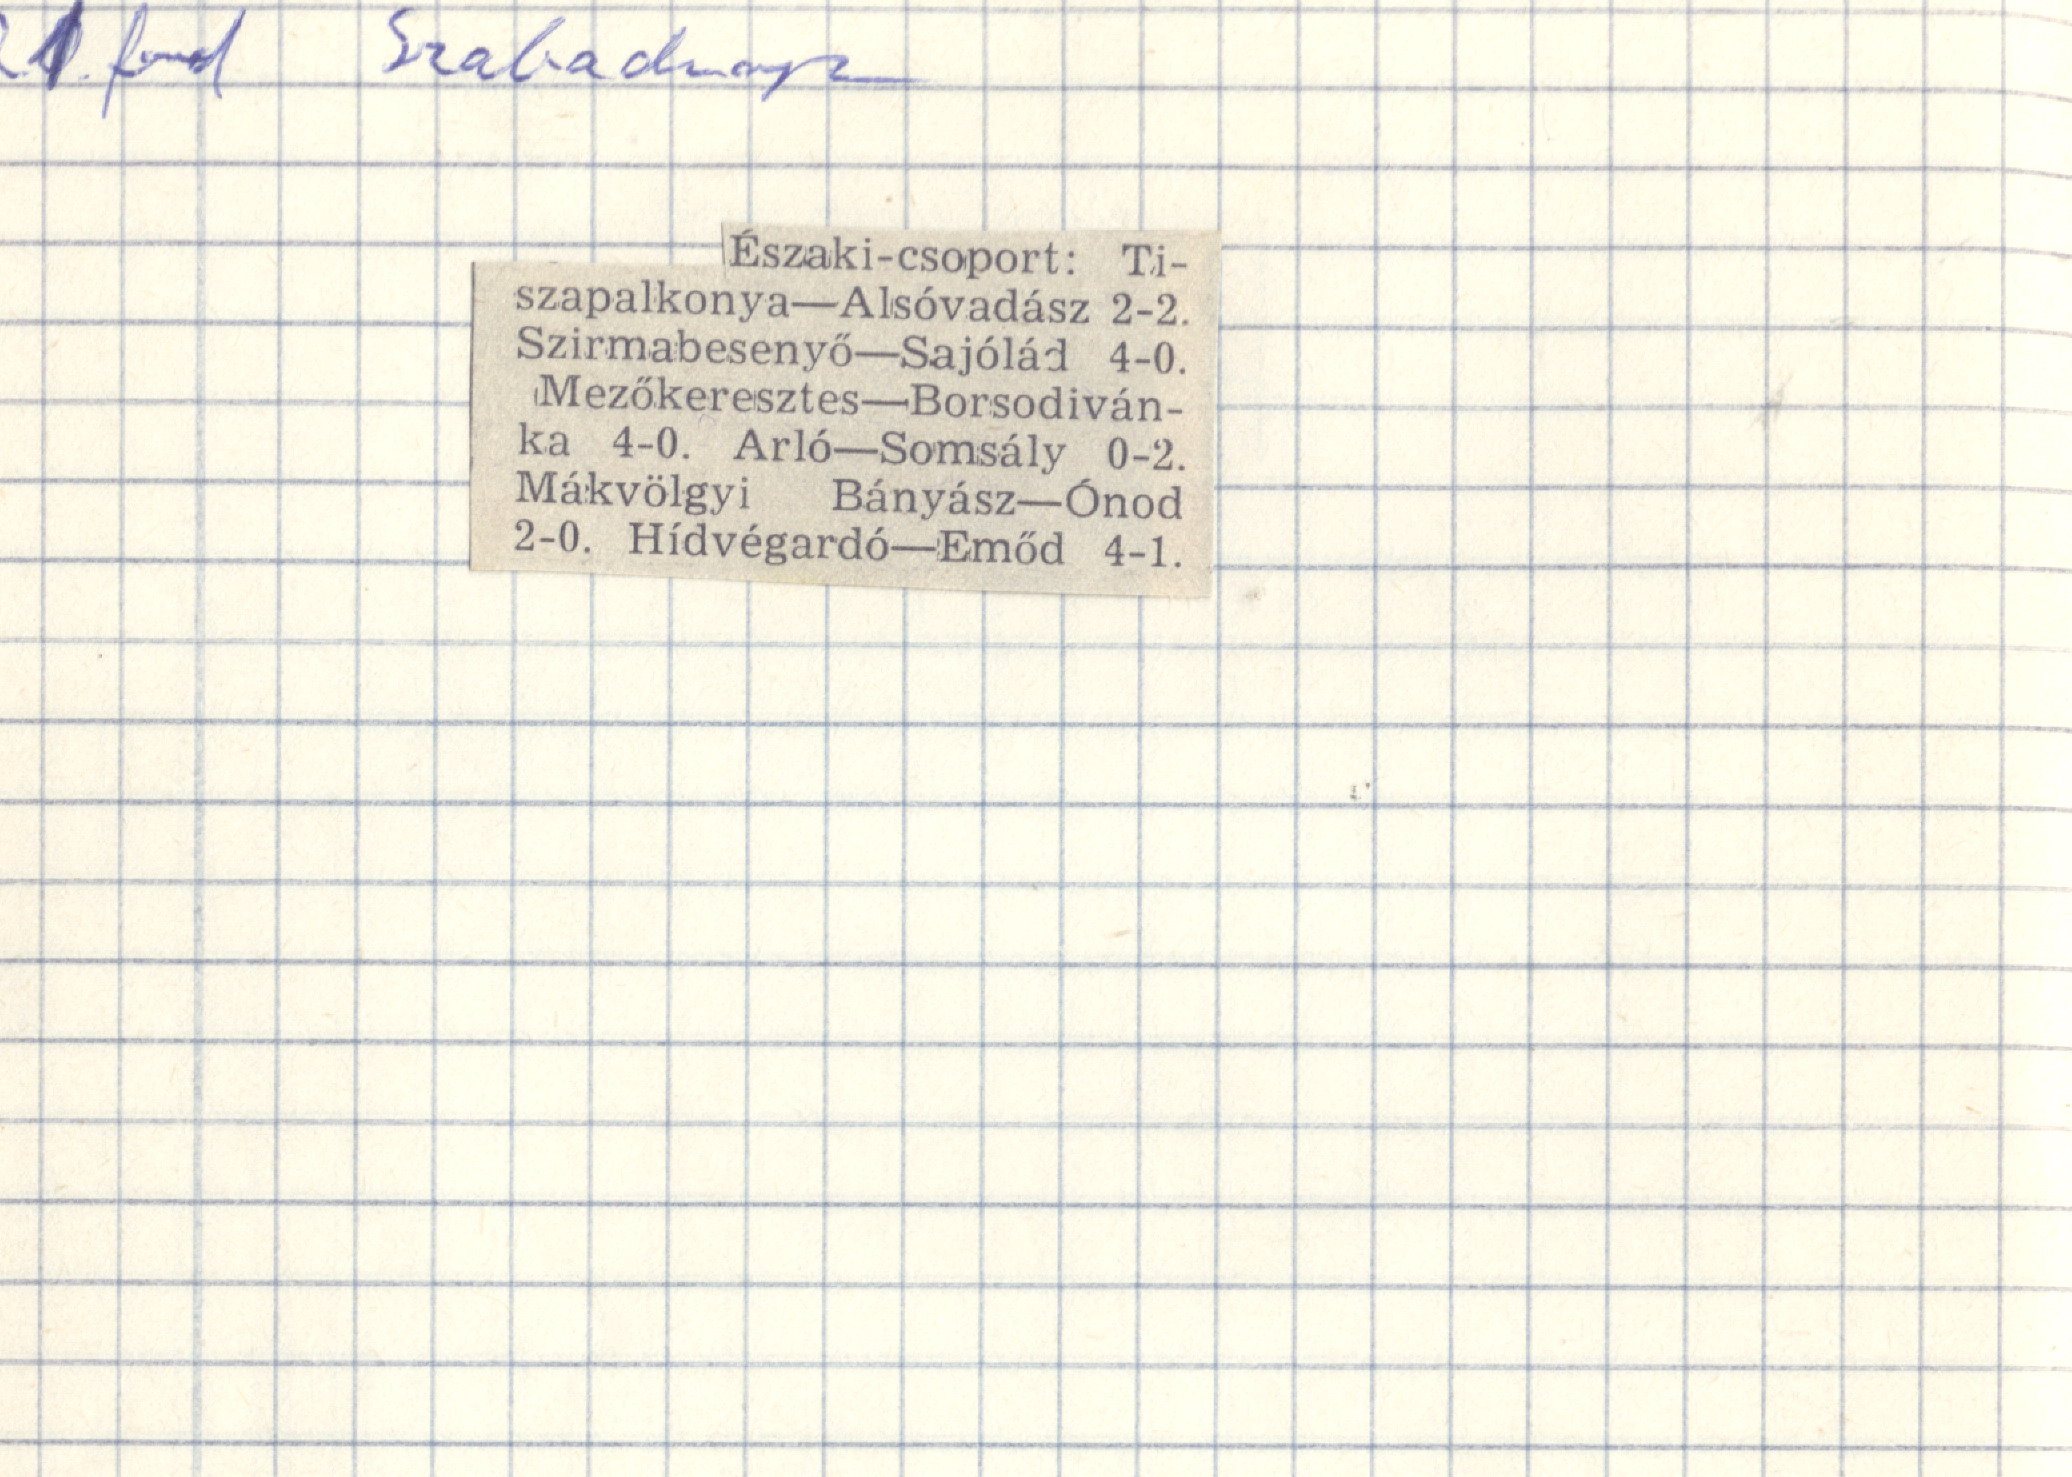 Szabadnapz
Északi-csoport: Ti-
szapalkonya—Alsóvadász 2-2.
Szirmabesenyő—Sajólád 4-0.
Mezőkeresztes—Borsodiván-
ka 4-0. Arló—Somsály 0-2.
Mákvölgyi Bányász—Ónod
2-0. Hídvégardó—Emőd 4-1.